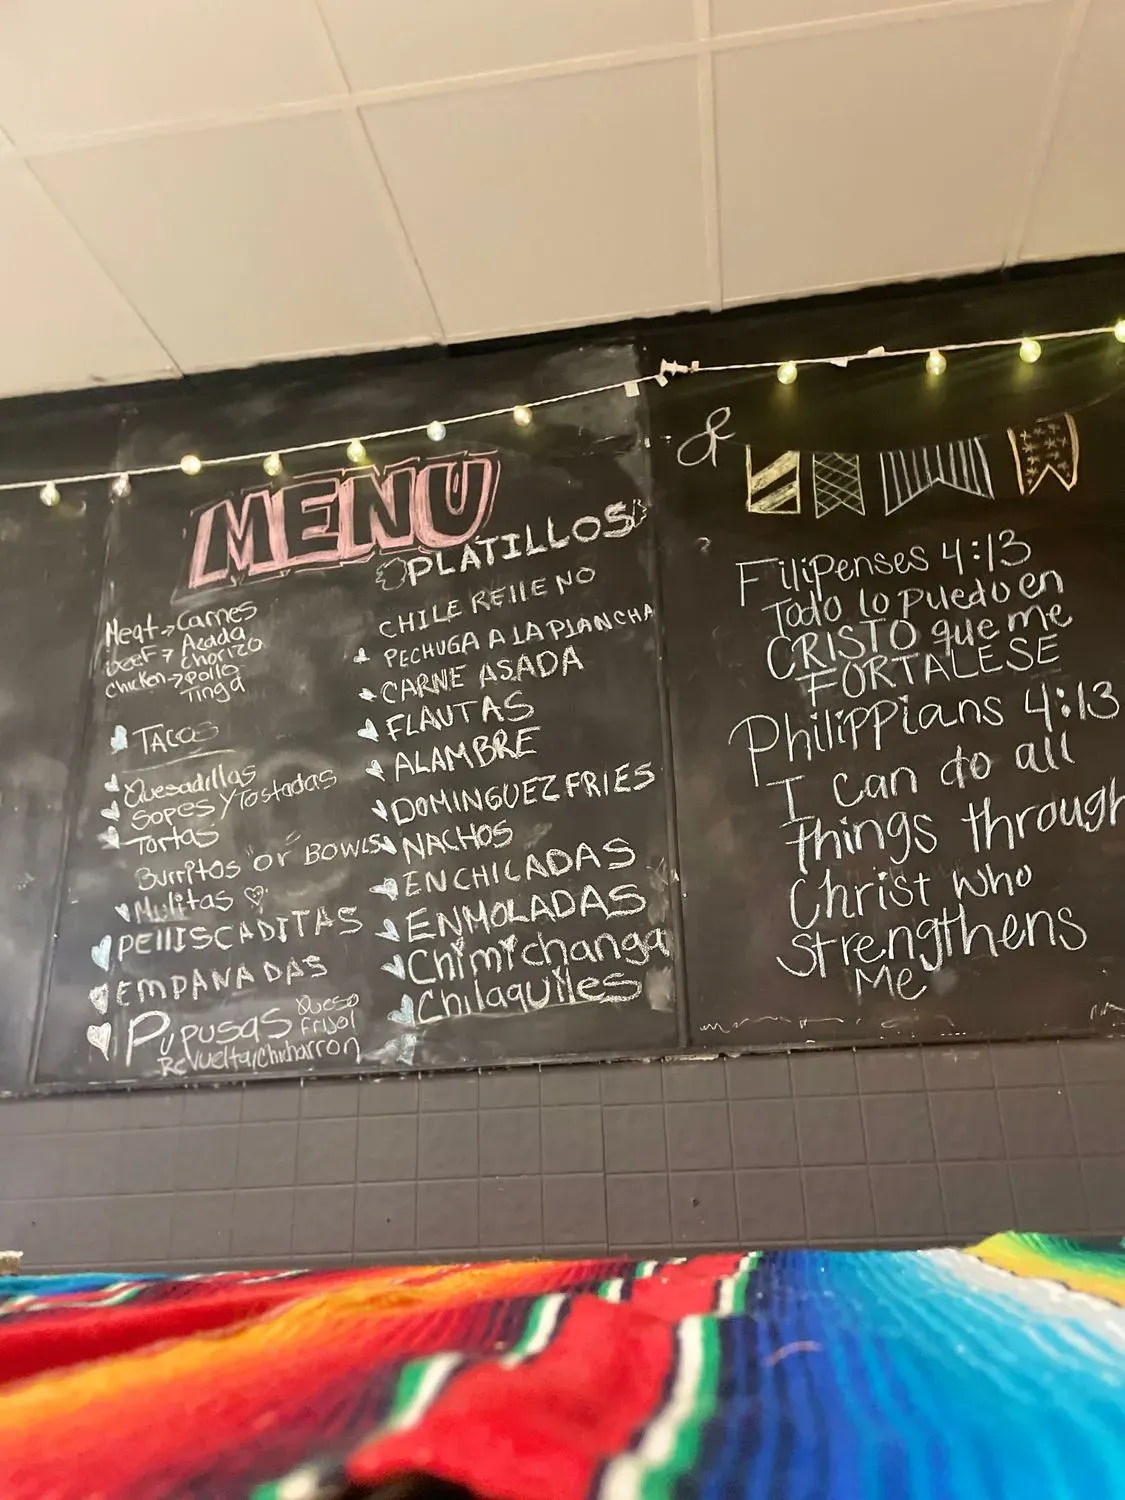 MENU
Meat → Carnes
BEEF → Azada
Chorizo
Chicken → Pollo
Tinga
TACOS
Quesadillas
Sopes y Tostadas
Tortas
Burritos or BOWLS
Mulitas
PEllISCADITAS
EMPANADAS
Pupusas Queso
Frijol
Revuelta/Chicharron
PLATILLOS
CHILE REllENO
PECHUGA A LA PLANCHA
CARNE ASADA
FLAUTAS
ALAMBRE
DOMINGUEZ FRIES
NACHOS
ENCHILADAS
ENMOLADAS
Chimichanga
Chilaquiles
Filipenses 4:13
Todo lo puedo en
CRISTO que me
FORTALESE
Philippians 4:13
I can do all
things through
Christ who
strengthens
Me